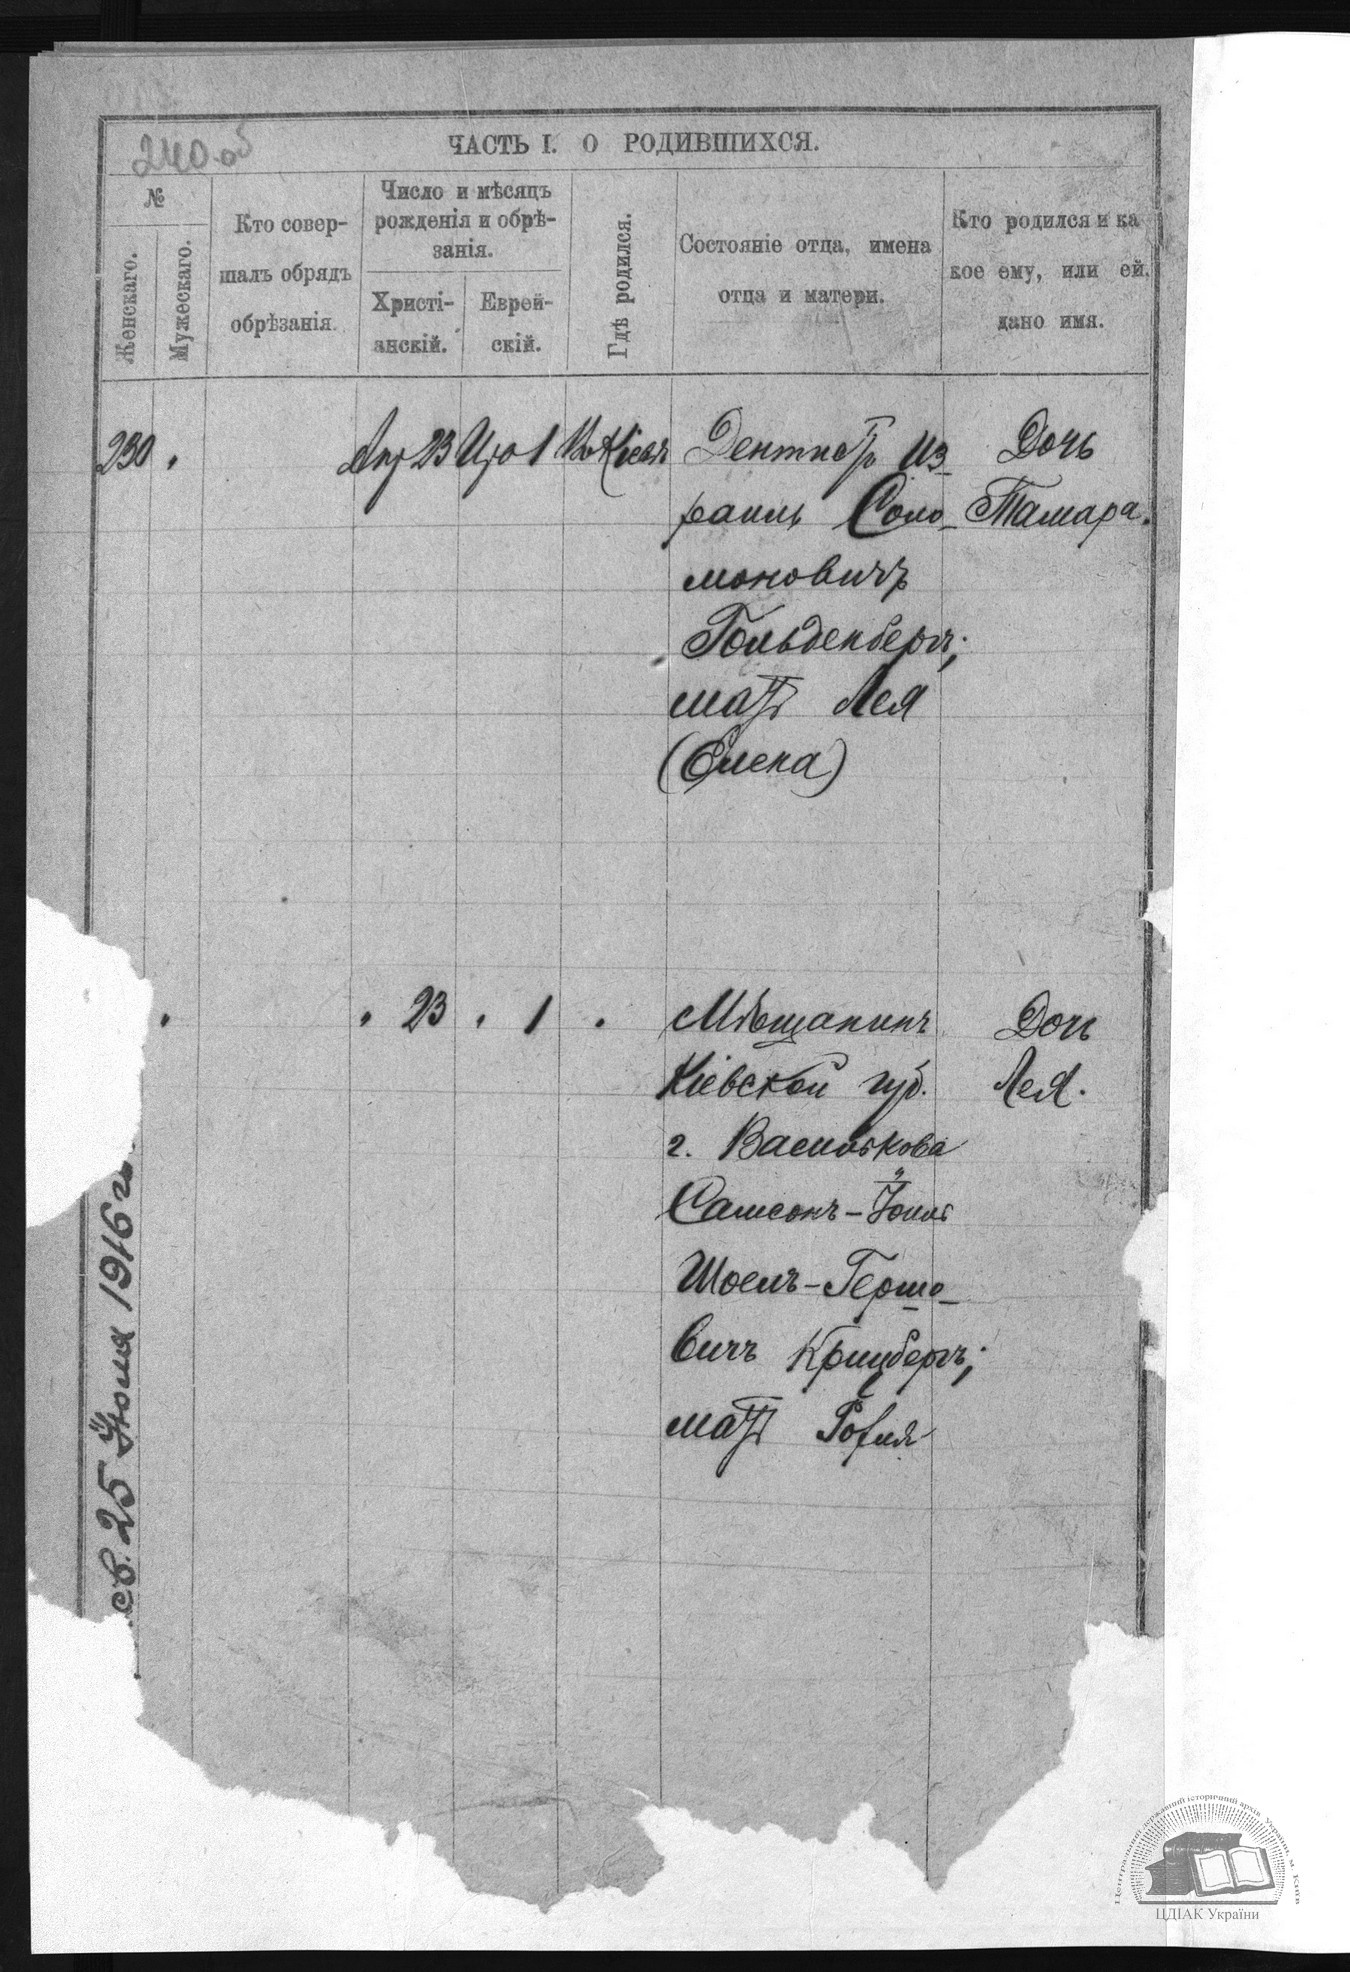 240 об
ЧАСТЬ I. О РОДИВШИХСЯ.
№
Женскаго.
Мужескаго.
Кто совер-
шалъ обрядъ
обрѣзанія.
Число и мѣсяцъ
рожденія и обрѣ-
занія.
Христі-
анскій.
Еврей-
скій.
Гдѣ родился.
Состояніе отца, имена
отца и матери.
Кто родился и ка
кое ему, или ей,
дано имя.
230 Апр 23 Іро 1 Въ Кіевѣ Дентистъ Из-
раиль Соло-
моновичъ
Гольденбергъ;
мать Лея
(Елена)
Дочь
Тамара.
23 1 Мѣщанинъ
Кіевской губ.
г. Василькова
Самсонъ-Іоиль
Шоелъ-Гершо-
вичъ Кринбергъ;
мать Софія
Дочь
Лея.
св. 25 Іюля 1916 г.
Центральний державний історичний архів України, м. Київ
ЦДІАК України